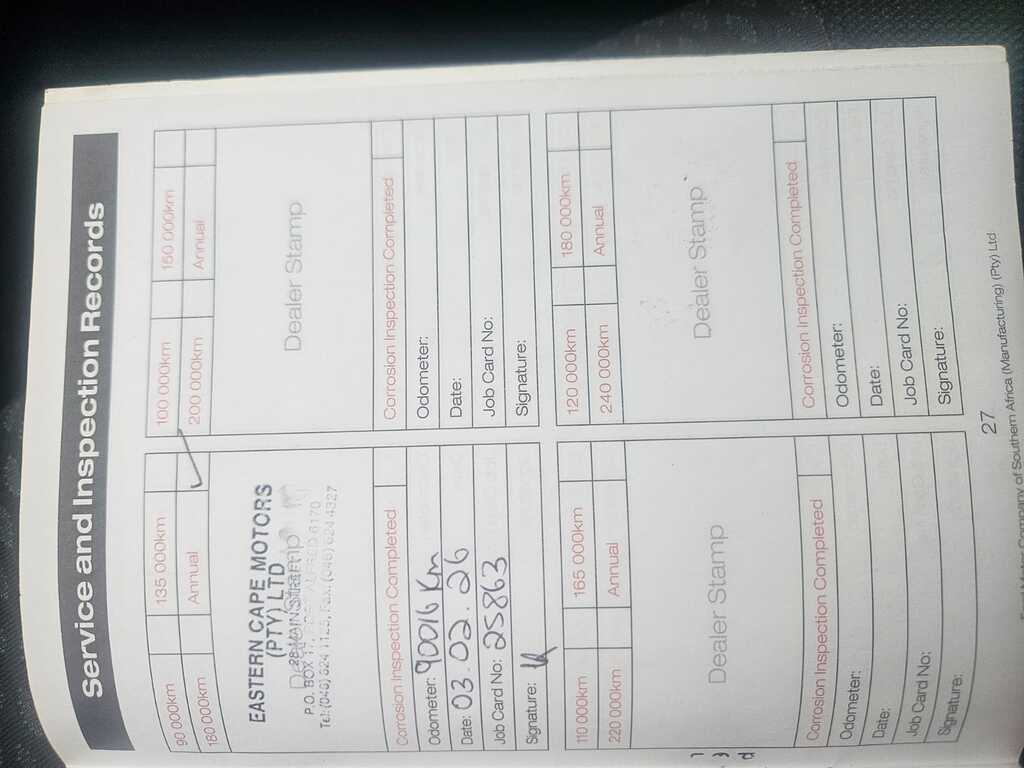 Service and Inspection Records
90 000km 135 000km
180 000km Annual ✓
EASTERN CAPE MOTORS
(PTY) LTD
Dealer Stamp
28 MAIN STREET
P.O. BOX PORT ALFRED 6170
Tel: (046) 624 1125, Fax: (046) 624 4327
Corrosion Inspection Completed
Odometer: 90016 Km
Date: 03.02.26
Job Card No: 25863
Signature:
100 000km 150 000km
200 000km Annual
Dealer Stamp
Corrosion Inspection Completed
Odometer:
Date:
Job Card No:
Signature:
110 000km 165 000km
220 000km Annual
Dealer Stamp
Corrosion Inspection Completed
Odometer:
Date:
Job Card No:
Signature:
120 000km 180 000km
240 000km Annual
Dealer Stamp
Corrosion Inspection Completed
Odometer:
Date:
Job Card No:
Signature:
27
Motor Company of Southern Africa (Manufacturing) (Pty) Ltd